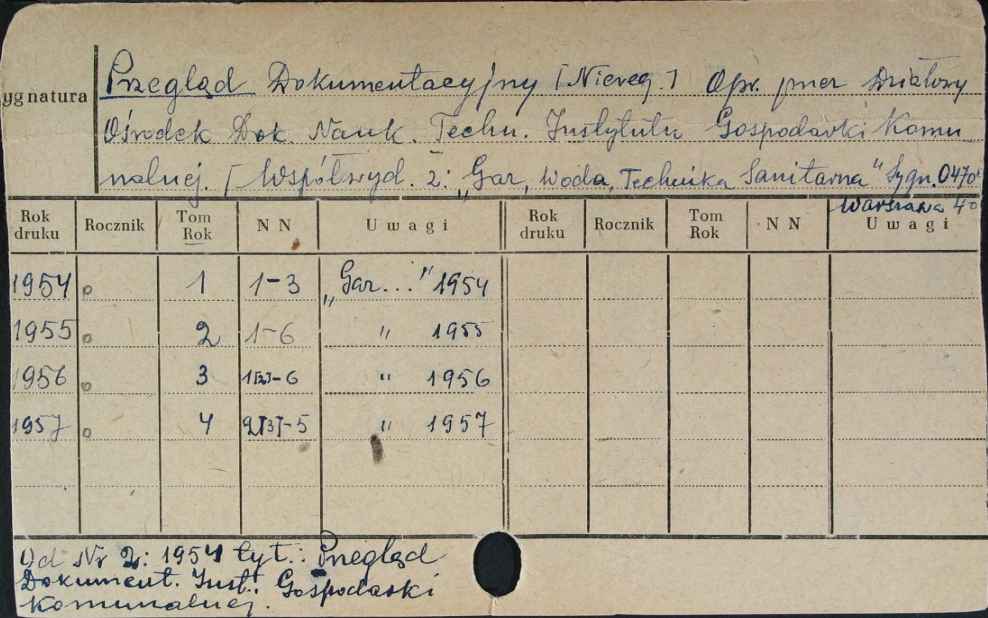 ygnatura
Przegląd Dokumentacyjny [Niereg.] Opr. przez Działowy
Ośrodek Dok. Nauk. Techn. Instytutu Gospodarki Komu
nalnej. [Współwyd. z: „Gaz, Woda, Technika Sanitarna" Sygn. 0470
Warszawa 40
Rok druku Rocznik Tom Rok N N Uwagi Rok druku Rocznik Tom Rok N N Uwagi
1954 1 1-3 „Gaz..." 1954
1955 2 1-6 " 1955
1956 3 1[2]-6 " 1956
1957 4 2[3]-5 " 1957
Od Nr 2: 1954 tyt.: Przegląd
Dokument. Inst. Gospodarki
Komunalnej.